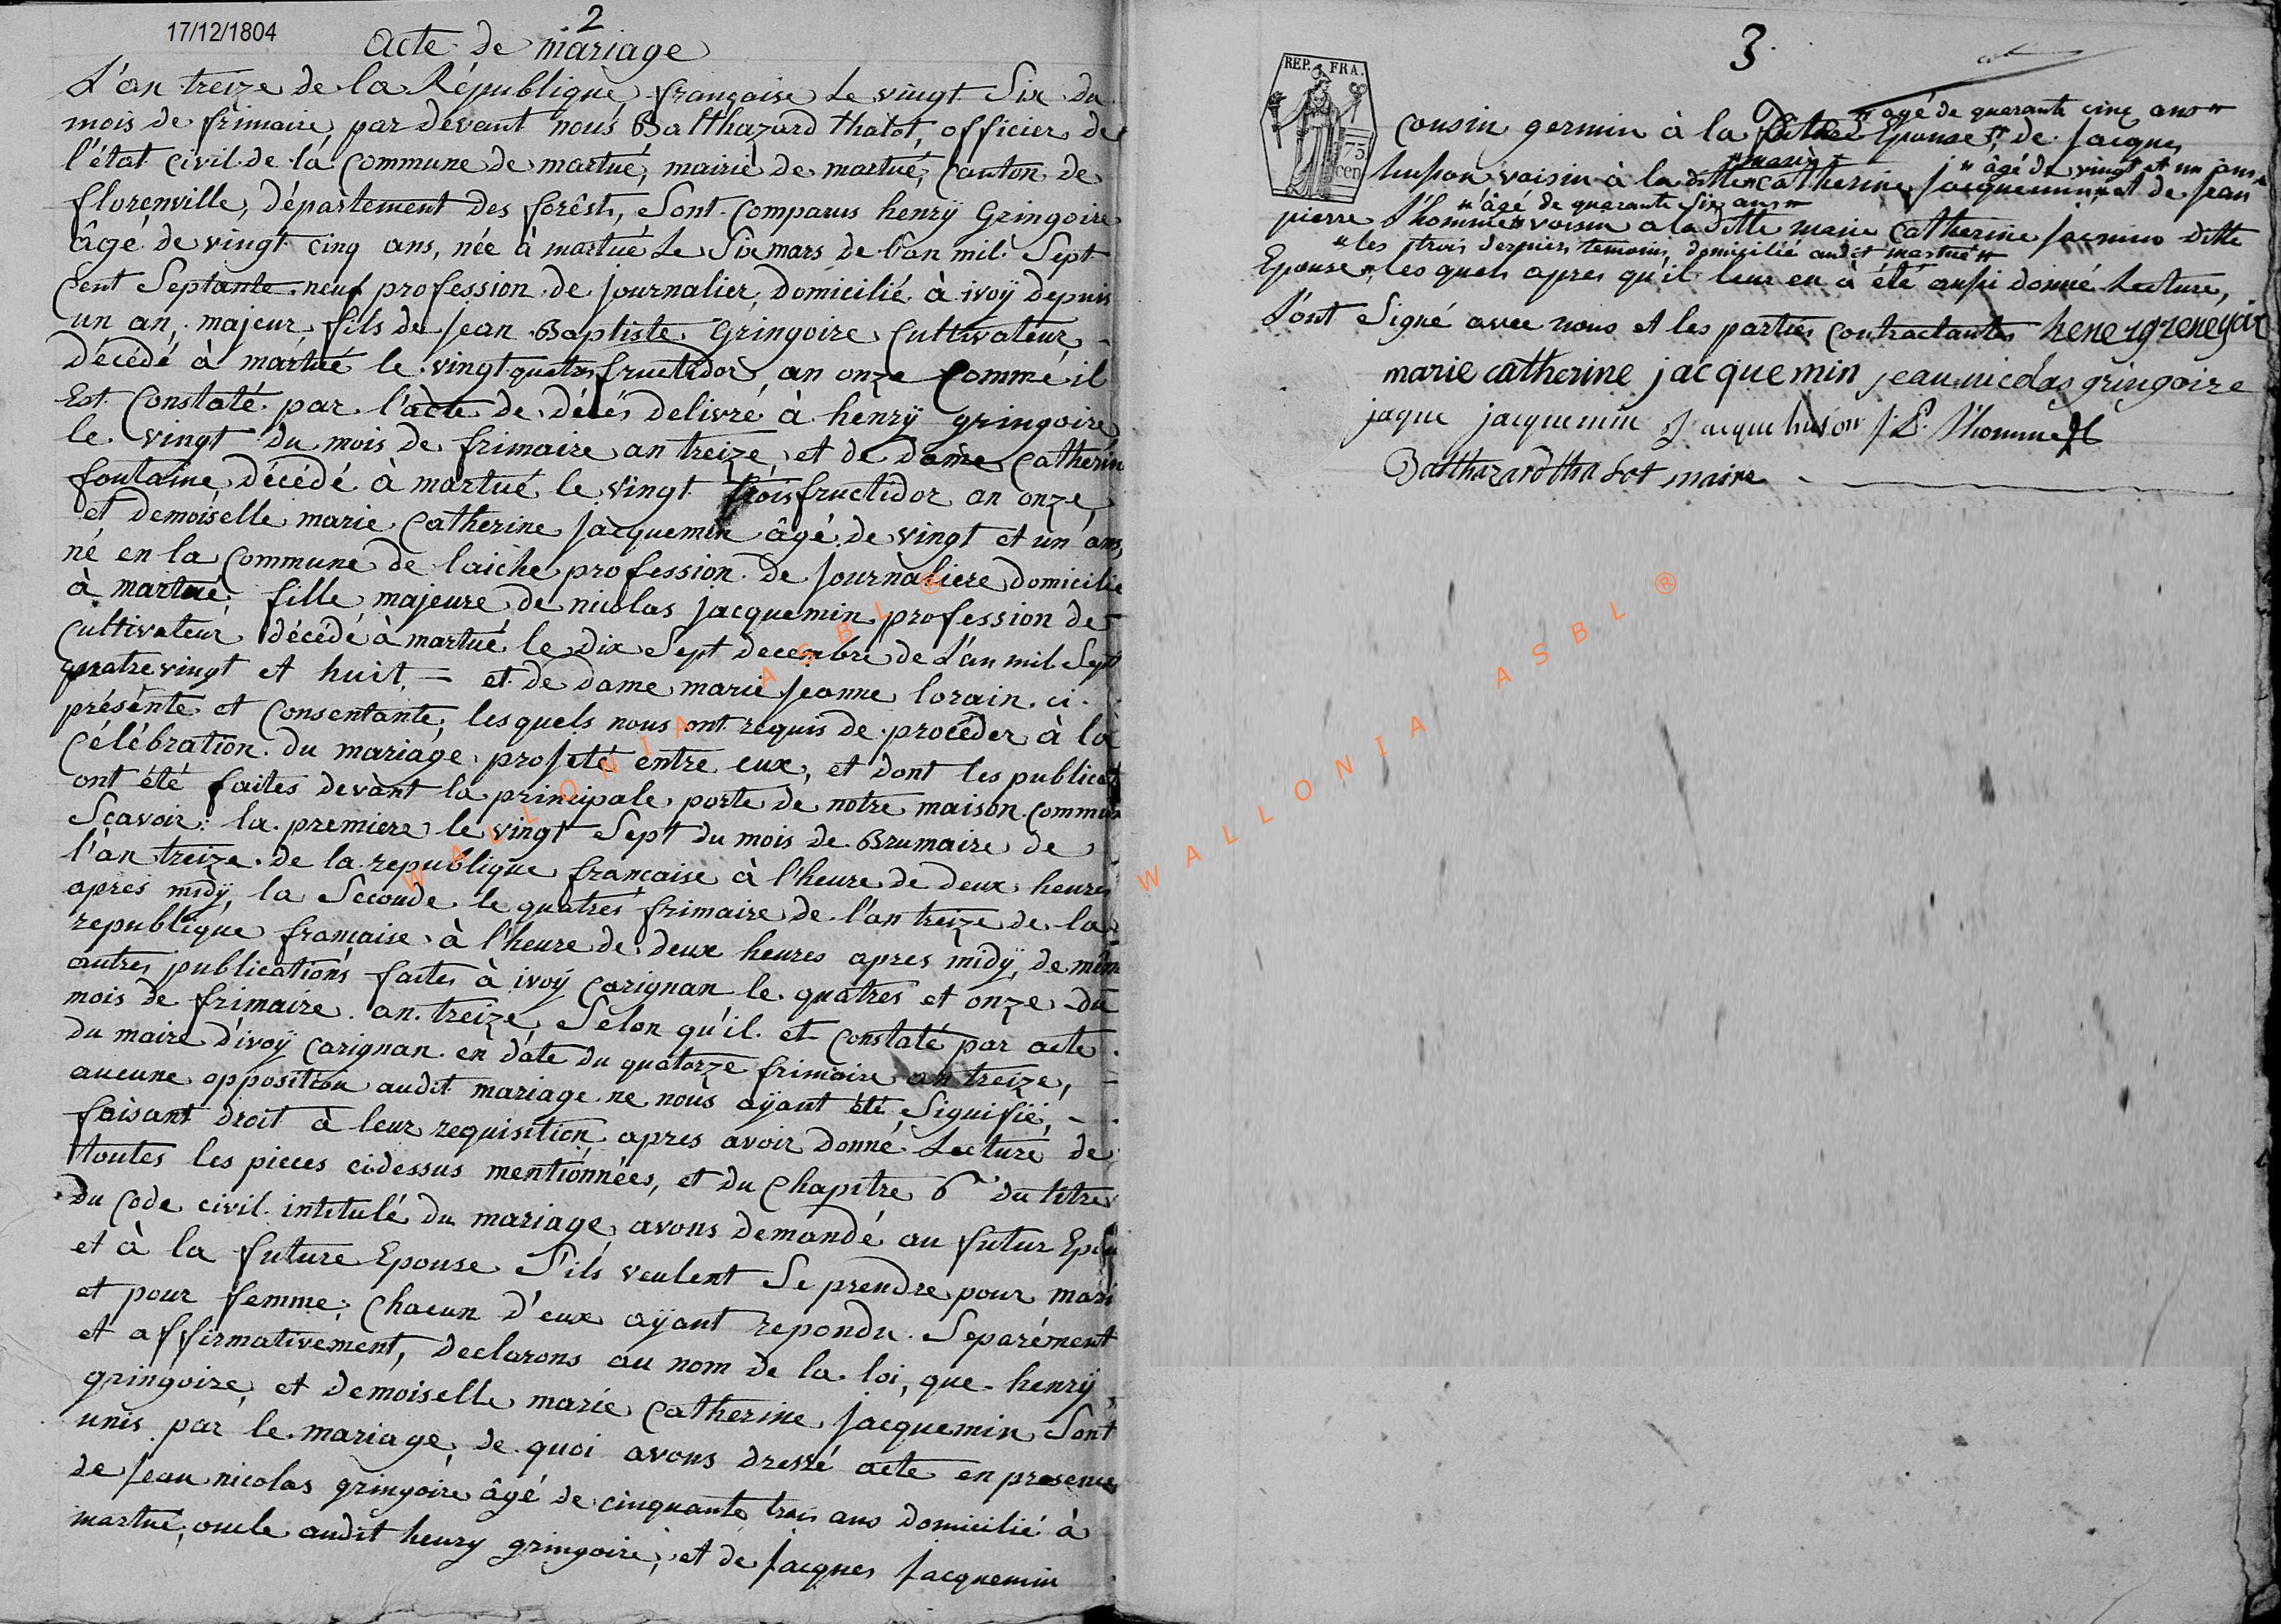 17/12/1804
2
Acte de mariage
L'an treize de la République française le vingt Six du
mois de frimaire, par devant nous Balthazard thalot, officier de
l'état civil de la Commune de martué, mairie de martué, Canton de
florenville, département des forêsts, Sont Comparus henrÿ Gringoire
âgé de vingt cinq ans, née à martué Le Six mars de l'an mil Sept
Cent Septante neuf profession de journalier, Domicilié à ivoÿ depuis
un an, majeur fils de jean Baptiste Gringoire Cultivateur
décédé à martué le vingt quatre fructidor an onze Comme il
Est Constaté par l'acte de décés delivré à henrÿ gringoire
le vingt du mois de frimaire an treize et de dame Catherin
fontaine décédé à martué le vingt trois fructidor an onze
et demoiselle marie Catherine jacquemin âgé de vingt et un ans,
né en la Commune de laiche profession de journaliere domicilie
à martué, fille majeure de nicolas jacquemin profession de
Cultivateur décédé à martué le dix Sept decembre de L'an mil Sept
quatre vingt et huit = et de dame marie jeanne lorain ci
présente et Consentante, lesquels nous ont requis de procéder à la
Célébration du mariage projeté entre eux, et dont les publicat
ont été faites devant la principale porte de notre maison Commun
Scavoir: la premiere le vingt Sept du mois de Brumaire de
l'an treize de la republique française à l'heure de deux heures
apres midÿ, la Seconde le quatres frimaire de l'an treize de la
republique française à l'heure de deux heures apres midÿ, de mêm
autres publications faites à ivoÿ Carignan le quatres et onze du
mois de frimaire an treize, Selon qu'il et Constaté par acte
du maire d'ivoÿ Carignan en date du quatorze frimaire an treize, =
aucune opposition audit mariage ne nous aÿant été Signifié, -
faisant droit à leur requisition apres avoir donné Lecture de
toutes les pieces cidessus mentionnées, et du Chapitre 6 du titre
du Code civil intitulé du mariage avons demandé au futur Epou
et à la future Epouse S'ils veulent Se prendre pour mari
et pour femme; Chacun d'eux aÿant repondu Separément
et affirmativement, declarons au nom de la loi, que henrÿ
gringoire et demoiselle marie Catherine jacquemin Sont
unis par le mariage, de quoi avons dressé acte en presence
de jean nicolas gringoire âgé de cinquante trois ans domicilié à
martué, oncle audit henry gringoire, et de jacques jacquemin
3
REP. FRA.
75
cen
" agé de quarante cinq ans "
Cousin germin à la ditte Epouse, " de jacques
" marie " " âgé de vingt et un ans "
husson voisin à la ditte " Catherine jacquemin, et de jean
" âgé de quarante six ans "
pierre l'homme " voisin a la ditte marie Catherine jacmin ditte
" les trois derniers temoins domicilié audit martué "
Epouse, " les quels apres qu'il leur en à été aussi donné Lecture,
L'ont Signé avec nous et les parties Contractantes
marie catherine jacquemin jean nicolas gringoire
jaque jacquemin Jacque huson J. P. l'homme
Balthazard thalot maire
WALLONIA ASBL ®
WALLONIA ASBL ®